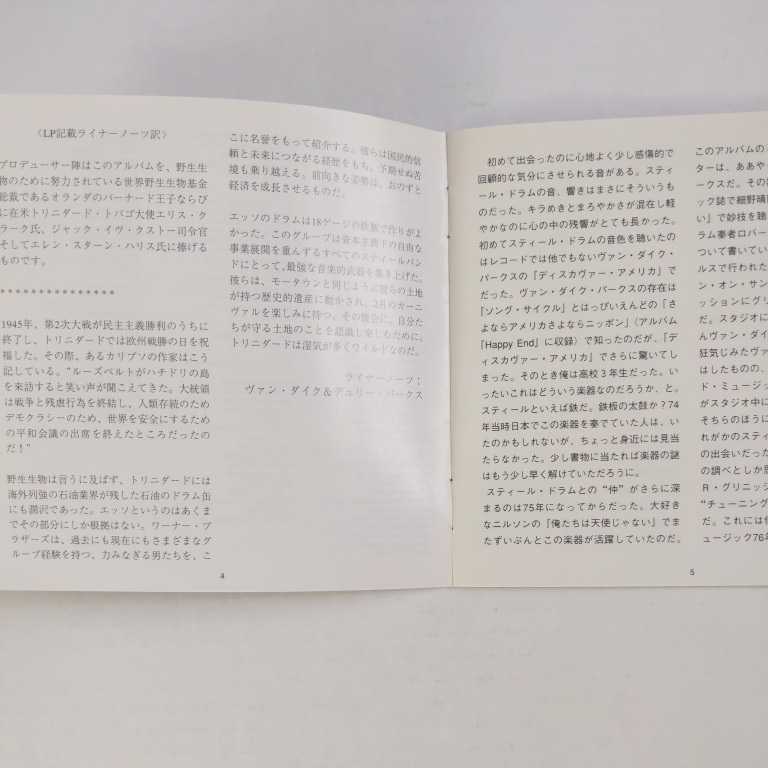 〈LP記載ライナーノーツ訳〉
プロデューサー陣はこのアルバムを、野生生
物のために努力されている世界野生生物基金
総裁であるオランダのバーナード王子ならび
に在米トリニダード・トバゴ大使エリス・ク
ラーク氏、ジャック・イヴ・クストー司令官
そしてエレン・スターン・ハリス氏に捧げる
ものです。
***************
1945年、第2次大戦が民主主義勝利のうちに
終了し、トリニダードでは欧州戦勝の日を祝
福した。その際、あるカリプソの作家はこう
記している。“ルーズベルトがハチドリの島
を来訪すると笑い声が聞こえてきた。大統領
は戦争と残虐行為を終結し、人類存続のため
デモクラシーのため、世界を安全にするため
の平和会議の出席を終えたところだったの
だ！”
野生生物は言うに及ばず、トリニダードには
海外列強の石油業界が残した石油のドラム缶
にも潤沢であった。エッソというのはあくま
でその部分にしか根拠はない。ワーナー・ブ
ラザーズは、過去にも現在にもさまざまなグ
ループ経験を持つ、力みなぎる男たちを、こ
こに名誉をもって紹介する。彼らは国民的信
頼と未来につながる経歴をもち、予期せぬ苦
境も乗り越える。前向きな姿勢は、おのずと
経済を成長させるものだ。
エッソのドラムは18ゲージの鉄板で作りがよ
かった。このグループは資本主義下の自由な
事業展開を重んずるすべてのスティールバン
ドにとって、最強な音楽的武器を築き上げた。
彼らは、モータウンと同じように彼らの土地
が持つ歴史的遺産に動かされ、2月のカーニ
ヴァルを楽しみに待つ。その機会に、自分た
ちが守る土地のことを認識し楽しむために。
トリニダードは湿気が多くワイルドなのだ。
ライナーノーツ：
ヴァン・ダイク＆デュリー・パークス
4
初めて出会ったのに心地よく少し感傷的で
回顧的な気分にさせられる音がある。スティ
ール・ドラムの音、響きはまさにそういうも
のだった。キラめきとまろやかさが混在し軽
やかなのに心の中の残響がとても長かった。
初めてスティール・ドラムの音色を聴いたの
はレコードでは他でもないヴァン・ダイク・
パークスの「ディスカヴァー・アメリカ」で
だった。ヴァン・ダイク・パークスの存在は
「ソング・サイクル」とはっぴいえんどの「さ
よならアメリカさよならニッポン」（アルバム
「Happy End」に収録）で知ったのだが、「デ
ィスカヴァー・アメリカ」でさらに驚いてし
まった。そのとき俺は高校３年生だった。い
ったいこれはどういう楽器なのだろうか、と。
スティールといえば鉄だ。鉄板の太鼓か？74
年当時日本でこの楽器を奏でていた人は、い
たのかもしれないが、ちょっと身近には見当
たらなかった。少し書物に当たれば楽器の謎
はもう少し早く解けていただろうに。
スティール・ドラムとの“仲”がさらに深
まるのは75年になってからだった。大好き
なニルソンの「俺たちは天使じゃない」でま
たずいぶんとこの楽器が活躍していたのだ。
5
このアルバムの
ターは、ああや
ークスだ。その
ック誌で細野晴
い」で妙技を聴
ラム奏者ロバー
ついて書いてい
ルスで行われた
ン・オン・サン
ッションにグリ
だ。スタジオに
んヴァン・ダイ
狂気じみたヴァ
はしたものの、
ド・ミュージッ
がスタジオ中に
そちらのほうに
れがかのスティ
の出会いだった
の調べとしか思
Ｒ・グリニッシ
“チューニング
だ。これには
ュージック76年